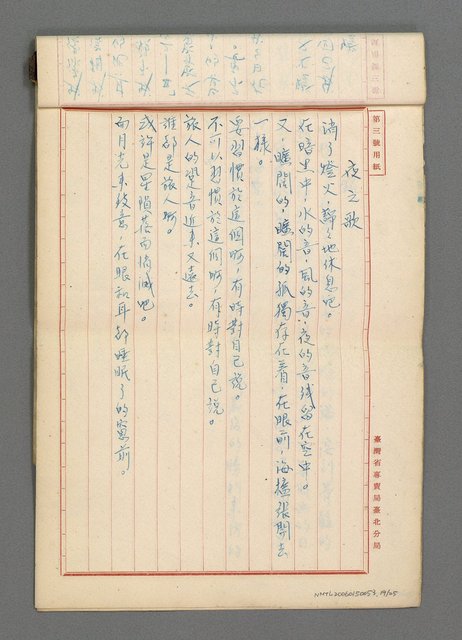 第三號用紙
夜之歌
消了燈火，靜靜地休息吧。
在暗黑中，水的音，風的音，夜的音殘留在空中。
又，曠闊的，曠闊的孤獨存在着，在眼前，海樣張開去
一樣。
要習慣於這個啊，有時對自己說。
不可以習慣於這個啊，有時對自己說。
旅人的跫音近來又遠去。
誰都是旅人啊。
或許是星隕落而消滅吧。
而月光來徘徊，在眼和耳都睡眠了的窗前。
臺灣省專賣局臺北分局
NMTL20060150053, 19/25